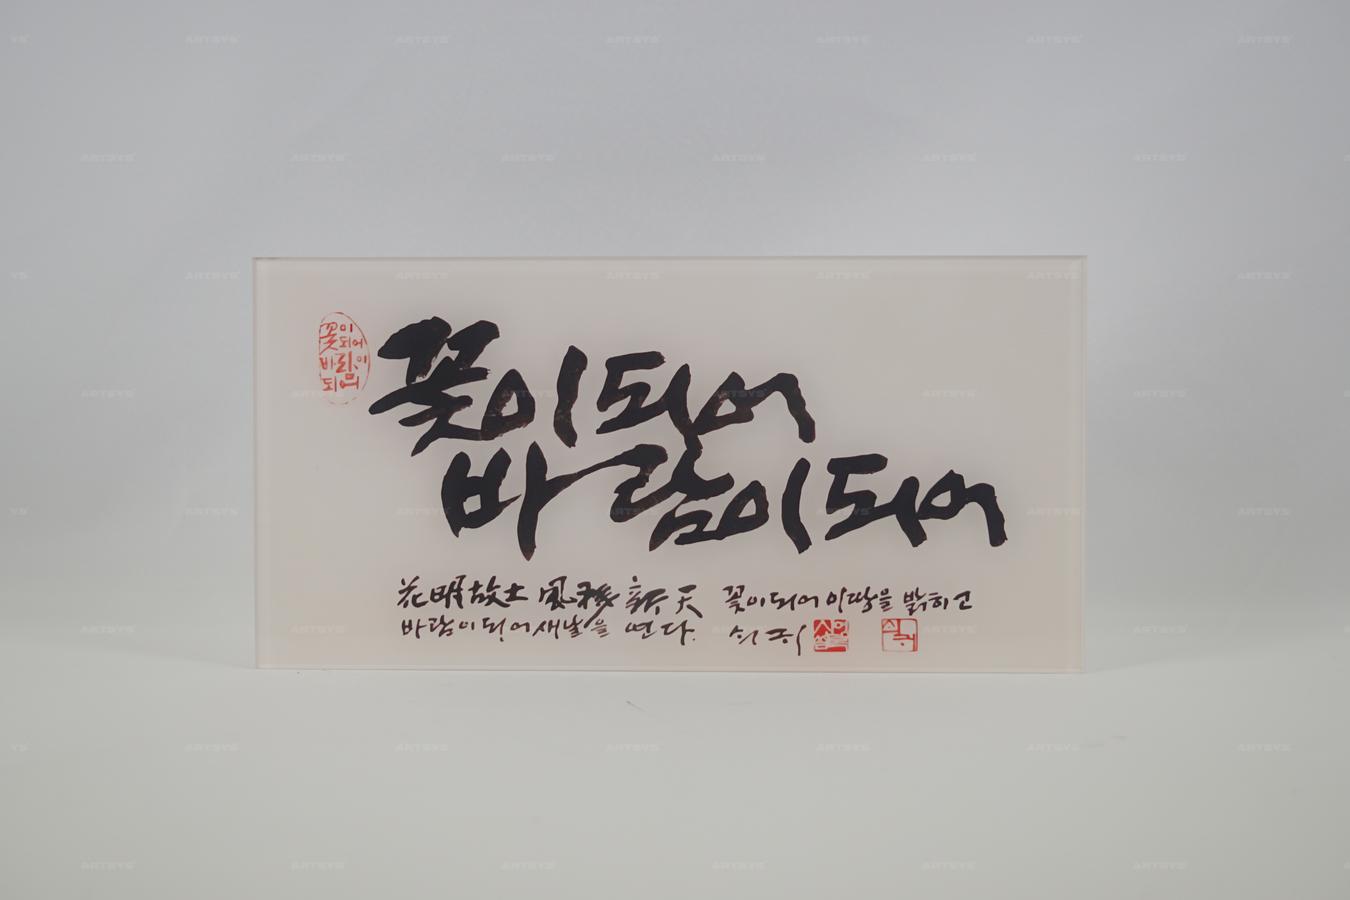 꽃이
되어
바람이
되어
꽃이되어
바람이되어
花明故土 風移新天 꽃이되어 이땅을 밝히고
바람이 되어 새날을 연다.
ARTSYS